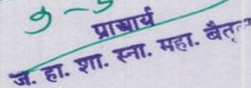 प्राचार्य
ज. हा. शा. स्ना. महा. बैतूल